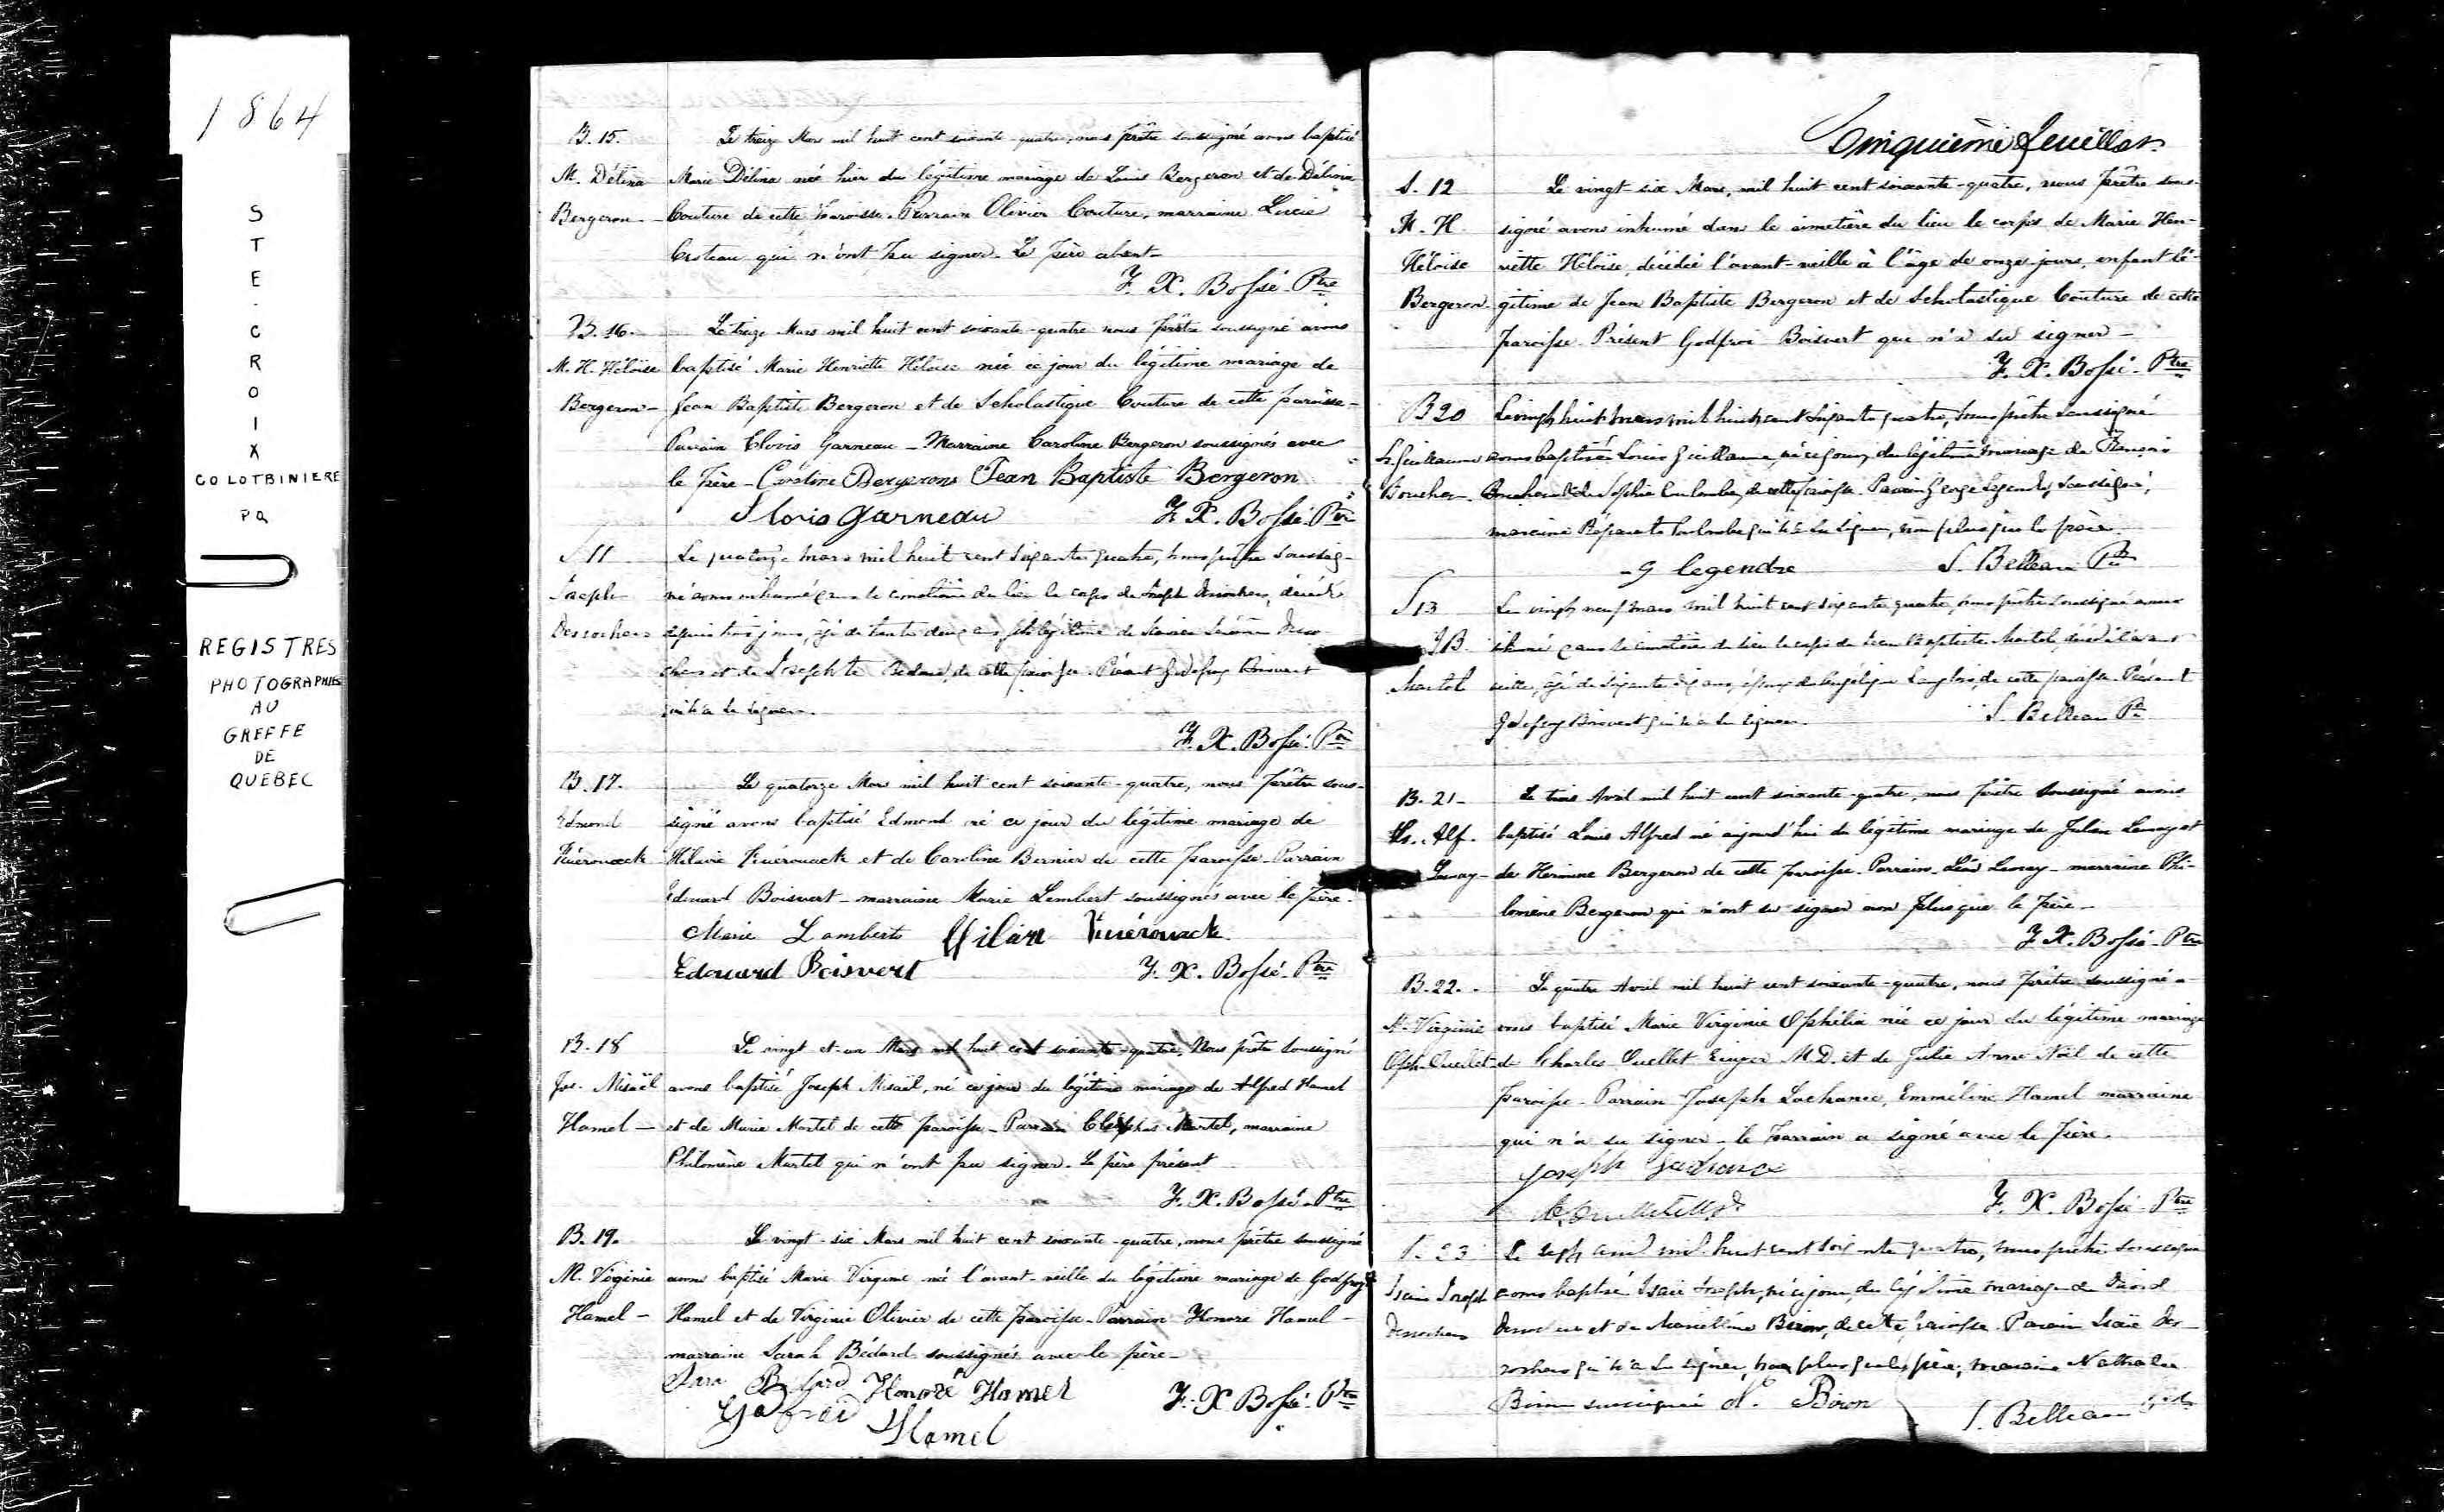 1864
STE-CROIX
CO LOTBINIERE
PQ
REGISTRES
PHOTOGRAPHIES
AU
GREFFE
DE
QUEBEC
B. 15.
M. Délina
Bergeron
Le treize Mars mil huit cent soixante-quatre, nous prêtre soussigné avons baptisé
Marie Délina née hier du légitime mariage de Louis Bergeron et de Délina
Couture de cette paroisse. Parrain Olivier Couture, marraine Lucie
Croteau qui n'ont pu signer. Le père absent
F. X. Bossé Ptre
B. 16.
M. H. Héloïse
Bergeron
Le treize Mars mil huit cent soixante-quatre nous prêtre soussigné avons
baptisé Marie Henriette Héloise née ce jour du légitime mariage de
Jean Baptiste Bergeron et de Scholastique Couture de cette paroisse
Parrain Clovis Garneau - Marraine Caroline Bergeron soussignés avec
le Père - Caroline Bergerons Jean Baptiste Bergeron
Clovis Garneau F. X. Bossé Ptre
S 11
Joseph
Desrochers
Le quatorze mars mil huit cent soixante quatre, nous prêtre soussig-
né avons inhumé dans le cimetière du lieu le corps de Joseph Desrochers, décédé
depuis trois jours, âgé de trente deux ans, fils légitime de
chers et de Josephte de cette paroisse. Présent Godefroy Boisvert
qui n'a su signer.
F. X. Bossé Ptre
B. 17.
Edmond
Kuérouack
Le quatorze Mars mil huit cent soixante-quatre, nous Prêtre sous-
signé avons baptisé Edmond né ce jour du légitime mariage de
Hilaire Kuérouack et de Caroline Bernier de cette paroisse. Parrain
Edouard Boisvert - marraine Marie Lambert soussignés avec le père.
Marie Lambert Hilair Kuérouack
Edouard Boisvert F. X. Bossé Ptre
B. 18
Jos. Misaël
Hamel
Le vingt et un Mars mil huit cent soixante-quatre, Nous prêtre soussigné
avons baptisé Joseph Misaël, né ce jour du légitime mariage de Alfred Hamel
et de Marie Martel de cette paroisse - Parrain Cléophas Martel, marraine
Philomène Martel qui n'ont pu signer. Le père présent
F. X. Bossé Ptre
B. 19.
M. Virginie
Hamel
Le vingt-six Mars mil huit cent soixante-quatre, nous prêtre soussigné
avons baptisé Marie Virginie née l'avant-veille du légitime mariage de Godfroy
Hamel et de Virginie Olivier de cette paroisse - Parrain Honoré Hamel
marraine Sarah Bédard soussignés avec le père
Sara Honoré Hamel F. X. Bossé Ptre
Hamel
Cinquième feuillet
S. 12
M. H.
Héloïse
Bergeron
Le vingt six Mars, mil huit cent soixante-quatre, nous Prêtre sous-
signé avons inhumé dans le cimetière du lieu le corps de Marie Hen-
riette Héloïse, décédée l'avant-veille à l'âge de onze jours, enfant lé-
gitime de Jean Baptiste Bergeron et de Scholastique Couture de cette
paroisse. Présent Godfroi Boisvert qui n'a su signer
F. X. Bossé - Ptre
B 20
Ls Guillaume
Boucher
Le vingt huit mars mil huit cent soixante quatre, nous prêtre soussigné
avons baptisé Louis Guillaume, né ce jour, du légitime mariage de François
Boucher et de Sophie Coulombe, de cette paroisse. Parrain George Legendre, soussigné,
marraine Coulombe qui n'a su signer, non plus que le père.
G Legendre S. Belleau Ptre
S 13
J B
Martel
Le vingt neuf mars mil huit cent soixante quatre, nous prêtre soussigné avons
inhumé dans le cimetière du lieu le corps de Jean Baptiste Martel, décédé l'avant
veille, âgé de soixante dix ans, époux de Angélique Langlois, de cette paroisse. Présent
Godefroy Boisvert qui n'a su signer. S. Belleau Ptre
B. 21
Ls. Alf.
Lemay
Le trois Avril mil huit cent soixante-quatre, nous prêtre soussigné avons
baptisé Louis Alfred né aujourd'hui du légitime mariage de Julien Lemay et
de Hermine Bergeron de cette paroisse. Parrain Léon Lemay - marraine Phi-
lomène Bergeron qui n'ont su signer non plus que le Père
F. X. Bossé - Ptre
B. 22.
M. Virginie
Oph. Ouellet
Le quatre Avril mil huit cent soixante-quatre, nous Prêtre soussigné a-
vons baptisé Marie Virginie Ophélia née ce jour du légitime mariage
de Charles Ouellet Ecuyer M.D. et de Julie Anne Noël de cette
paroisse. Parrain Joseph Lachance, Emméline Hamel marraine
qui n'a su signer - le parrain a signé avec le père.
Joseph Lachance
F. X. Bossé Ptre
23
Isaïe Joseph
Desrochers
Le sept avril mil huit cent soixante quatre, nous prêtre soussigné
avons baptisé Isaïe Joseph, né ce jour, du légitime mariage de David
Desrochers et de Marcelline Biron, de cette paroisse. Parrain Isaïe Des-
rochers qui n'a su signer, non plus que le père; marraine Nathalie
Biron soussignée N. Biron
S. Belleau Ptre